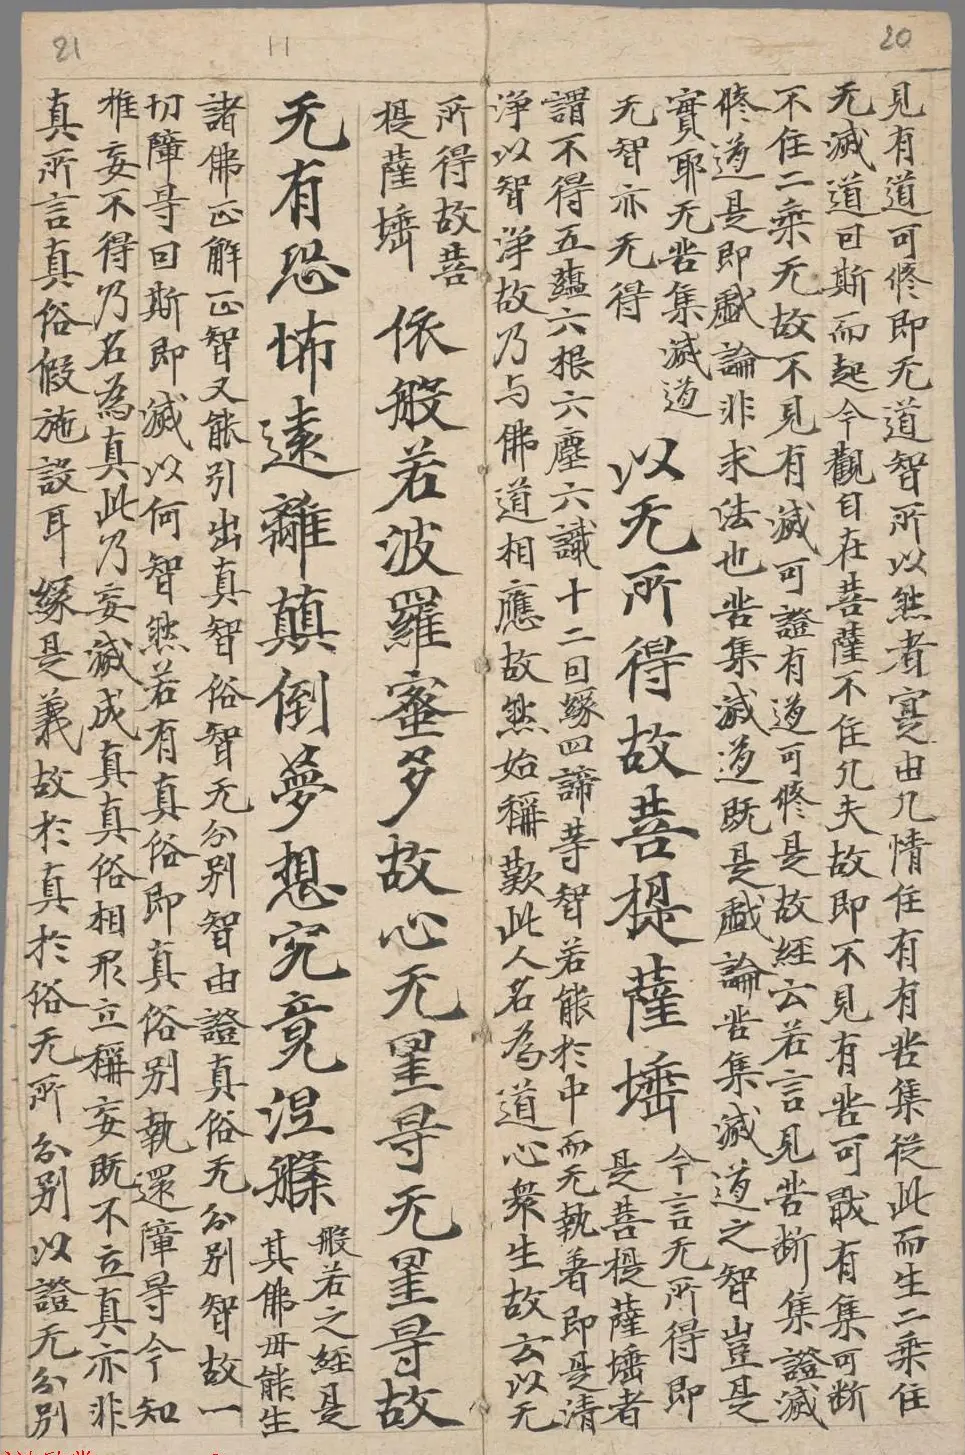 20
見有道可修即无道智所以然者寔由凡情住有有苦集從此而生二乘住
无滅道因斯而起今觀自在菩薩不住凡夫故即不見有苦可戢有集可斷
不住二乘无故不見有滅可證有道可修是故經云若言見苦斷集證滅
修道是即戲論非求法也苦集滅道既是戲論苦集滅道之智豈是
實耶无苦集滅道
无智亦无得
以无所得故菩提薩埵
今言无所得即
是菩提薩埵者
謂不得五蘊六根六塵六識十二因緣四諦等智若能於中而无執著即是清
淨以智淨故乃与佛道相應故然始稱歎此人名為道心衆生故云以无
11
所得故菩
提薩埵
依般若波羅蜜多故心无罣㝵无罣㝵故
无有恐怖遠離顛倒夢想究竟涅槃
般若之經是
其佛毋能生
諸佛正解正智又能引出真智俗智无分別智由證真俗无分別智故一
切障㝵因斯即滅以何智然若有真俗即真俗別執還障㝵今知
推妄不得乃名為真此乃妄滅成真真俗相形立稱妄既不立真亦非
真所言真俗假施設耳緣是義故於真於俗无所分別以證无分別
21